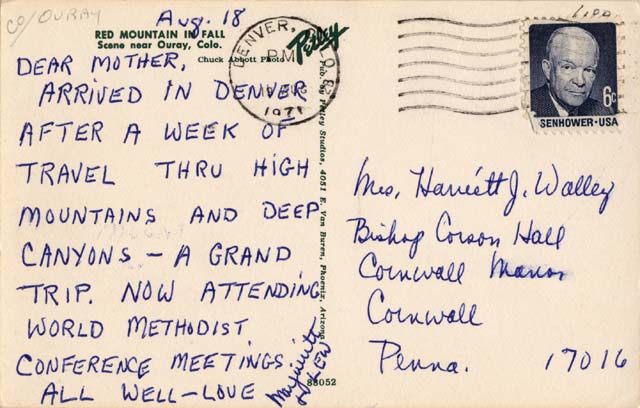 CO/OURAY
Aug. 18
RED MOUNTAIN IN FALL
Scene near Ouray, Colo.
Chuck Abbott Photo
Petley
DEAR MOTHER,
ARRIVED IN DENVER
AFTER A WEEK OF
TRAVEL THRU HIGH
MOUNTAINS AND DEEP
CANYONS — A GRAND
TRIP. NOW ATTENDING
WORLD METHODIST
CONFERENCE MEETINGS.
ALL WELL—LOVE
Marguerite
+ LEW
88052
Pub. by Petley Studios, 4051 E. Van Buren, Phoenix, Arizona
DENVER, COLO
PM
1971
6c
SENHOWER·USA
Mrs. Harriett J. Walley
Bishop Corson Hall
Cornwall Manor
Cornwall
Penna. 17016